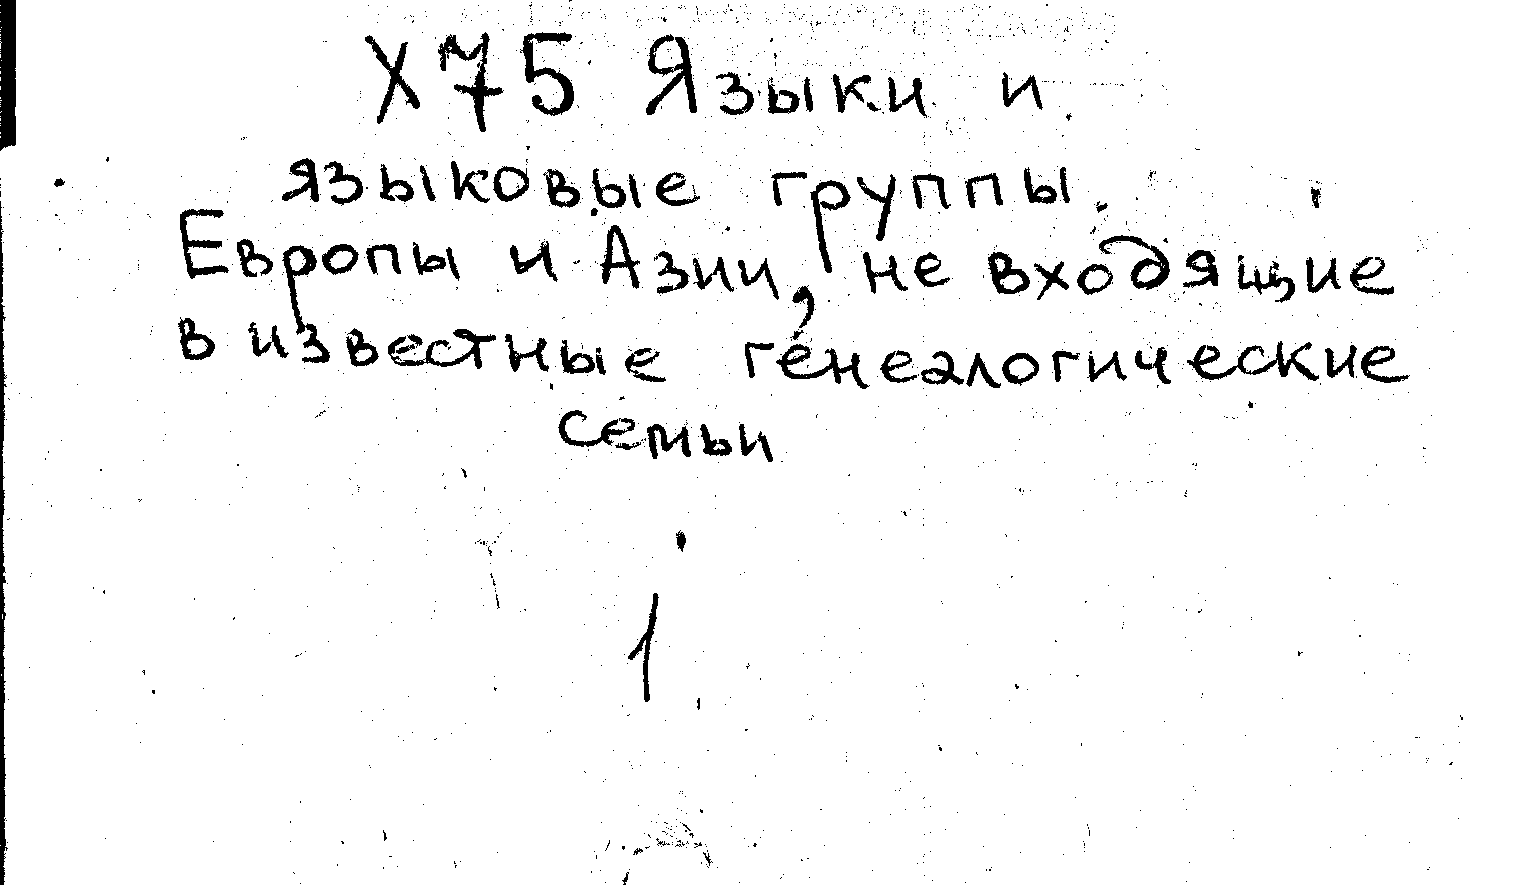 Х75 Языки и
языковые группы
Европы и Азии, не входящие
в известные генеалогические
семьи
1